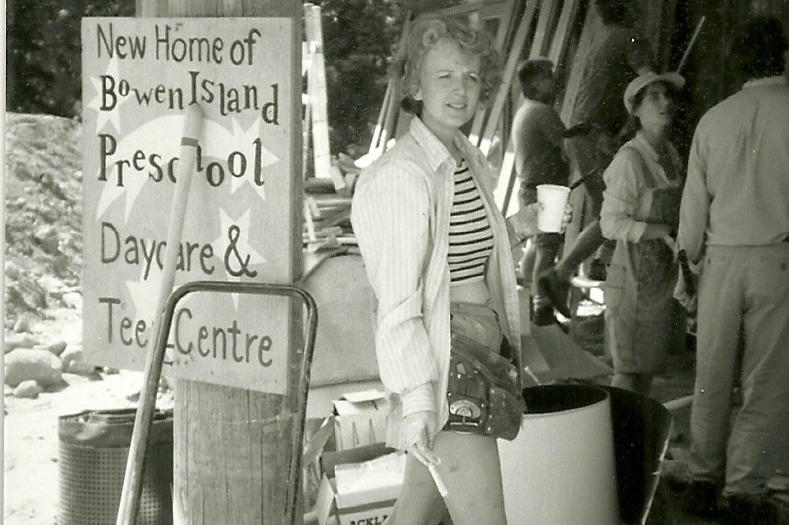 New Home of
Bowen Island
Preschool
Daycare &
Tee Centre